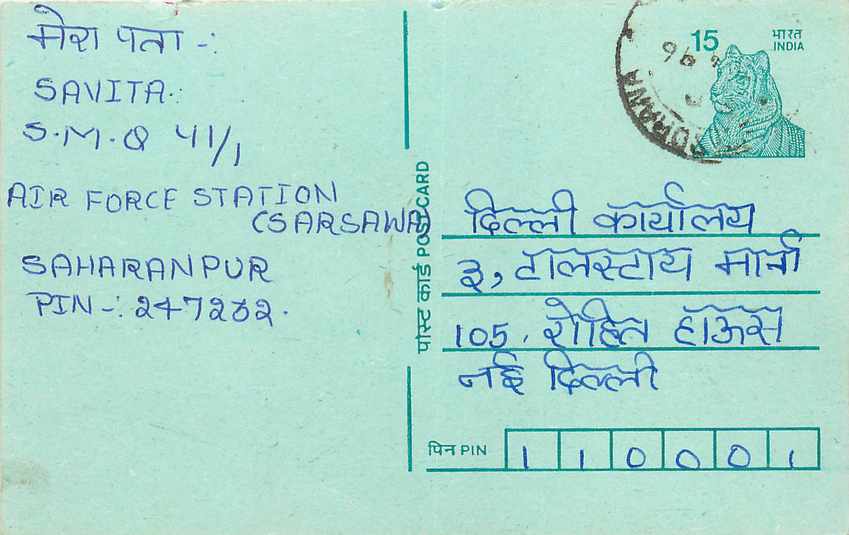 मेरा पता -:
SAVITA.
S.M.Q 41/1
AIR FORCE STATION
(SARSAWA)
SAHARANPUR
PIN-: 247232.
पोस्ट कार्ड POST CARD
15
भारत
INDIA
96
दिल्ली कार्यालय
३, टालस्टाय मार्ग
105, रोहित हाऊस
नई दिल्ली
पिन PIN 110001